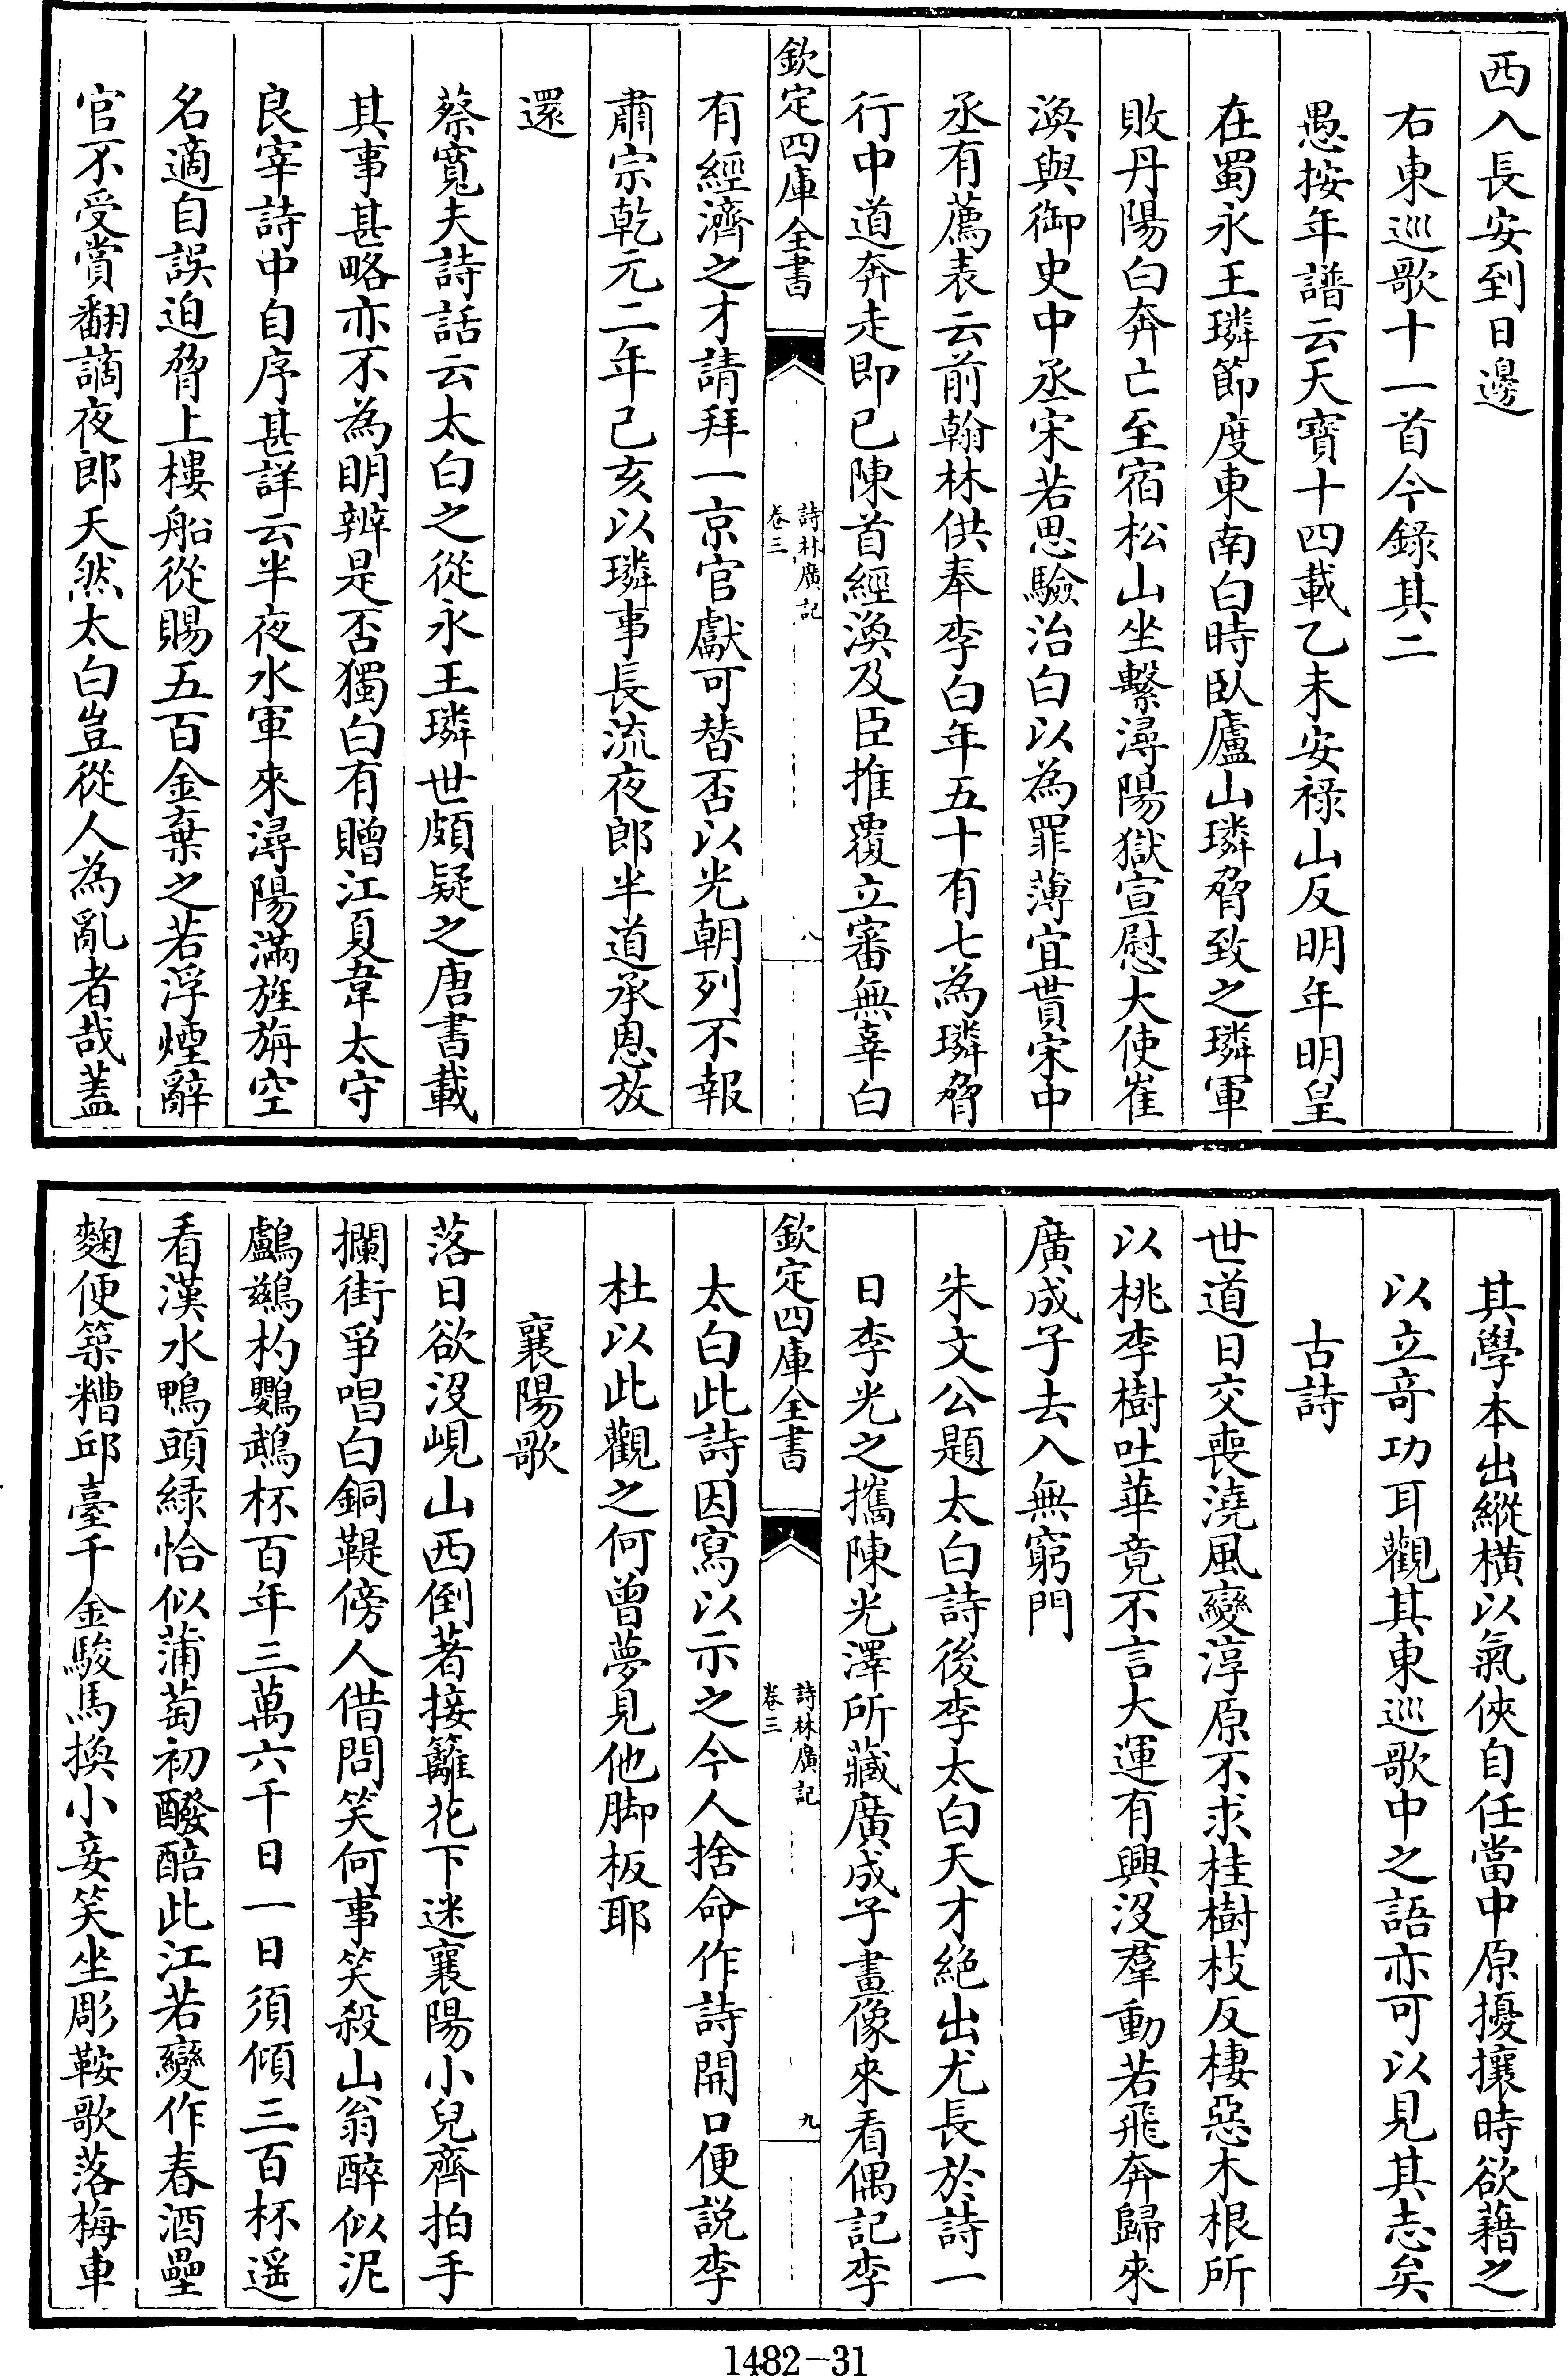 西入長安到日邊
右東巡歌十一首今錄其二
愚按年譜云天寶十四載乙未安祿山反明年明皇
在蜀永王璘節度東南白時臥廬山璘脅致之璘軍
敗丹陽白奔亡至宿松山坐繫潯陽獄宣慰大使崔
渙與御史中丞宋若思驗治白以為罪薄宜貰宋中
丞有薦表云前翰林供奉李白年五十有七為璘脅
行中道奔走即已陳首經渙及臣推覆立審無辜白
欽定四庫全書
詩林廣記
卷三
八
有經濟之才請拜一京官獻可替否以光朝列不報
肅宗乾元二年己亥以璘事長流夜郎半道承恩放
還
蔡寬夫詩話云太白之從永王璘世頗疑之唐書載
其事甚略亦不為明辨是否獨白有贈江夏韋太守
良宰詩中自序甚詳云半夜水軍來潯陽滿旌旃空
名適自誤迫脅上樓船從賜五百金棄之若浮煙辭
官不受賞翻謫夜郎天然太白豈從人為亂者哉蓋
其學本出縱橫以氣俠自任當中原擾攘時欲藉之
以立竒功耳觀其東巡歌中之語亦可以見其志矣
古詩
世道日交喪澆風變淳原不求桂樹枝反棲惡木根所
以桃李樹吐華竟不言大運有興沒羣動若飛奔歸來
廣成子去入無窮門
朱文公題太白詩後李太白天才絶出尤長於詩一
日李光之攜陳光澤所藏廣成子畫像來看偶記李
欽定四庫全書
詩林廣記
卷三
九
太白此詩因寫以示之今人捨命作詩開口便説李
杜以此觀之何曾夢見他脚板耶
襄陽歌
落日欲沒峴山西倒著接籬花下迷襄陽小兒齊拍手
攔街爭唱白銅鞮傍人借問笑何事笑殺山翁醉似泥
鸕鷀杓鸚鵡杯百年三萬六千日一日須傾三百杯遥
看漢水鴨頭緑恰似蒲萄初醱醅此江若變作春酒壘
麴便築糟邱臺千金駿馬換小妾笑坐彫鞍歌落梅車
1482-31